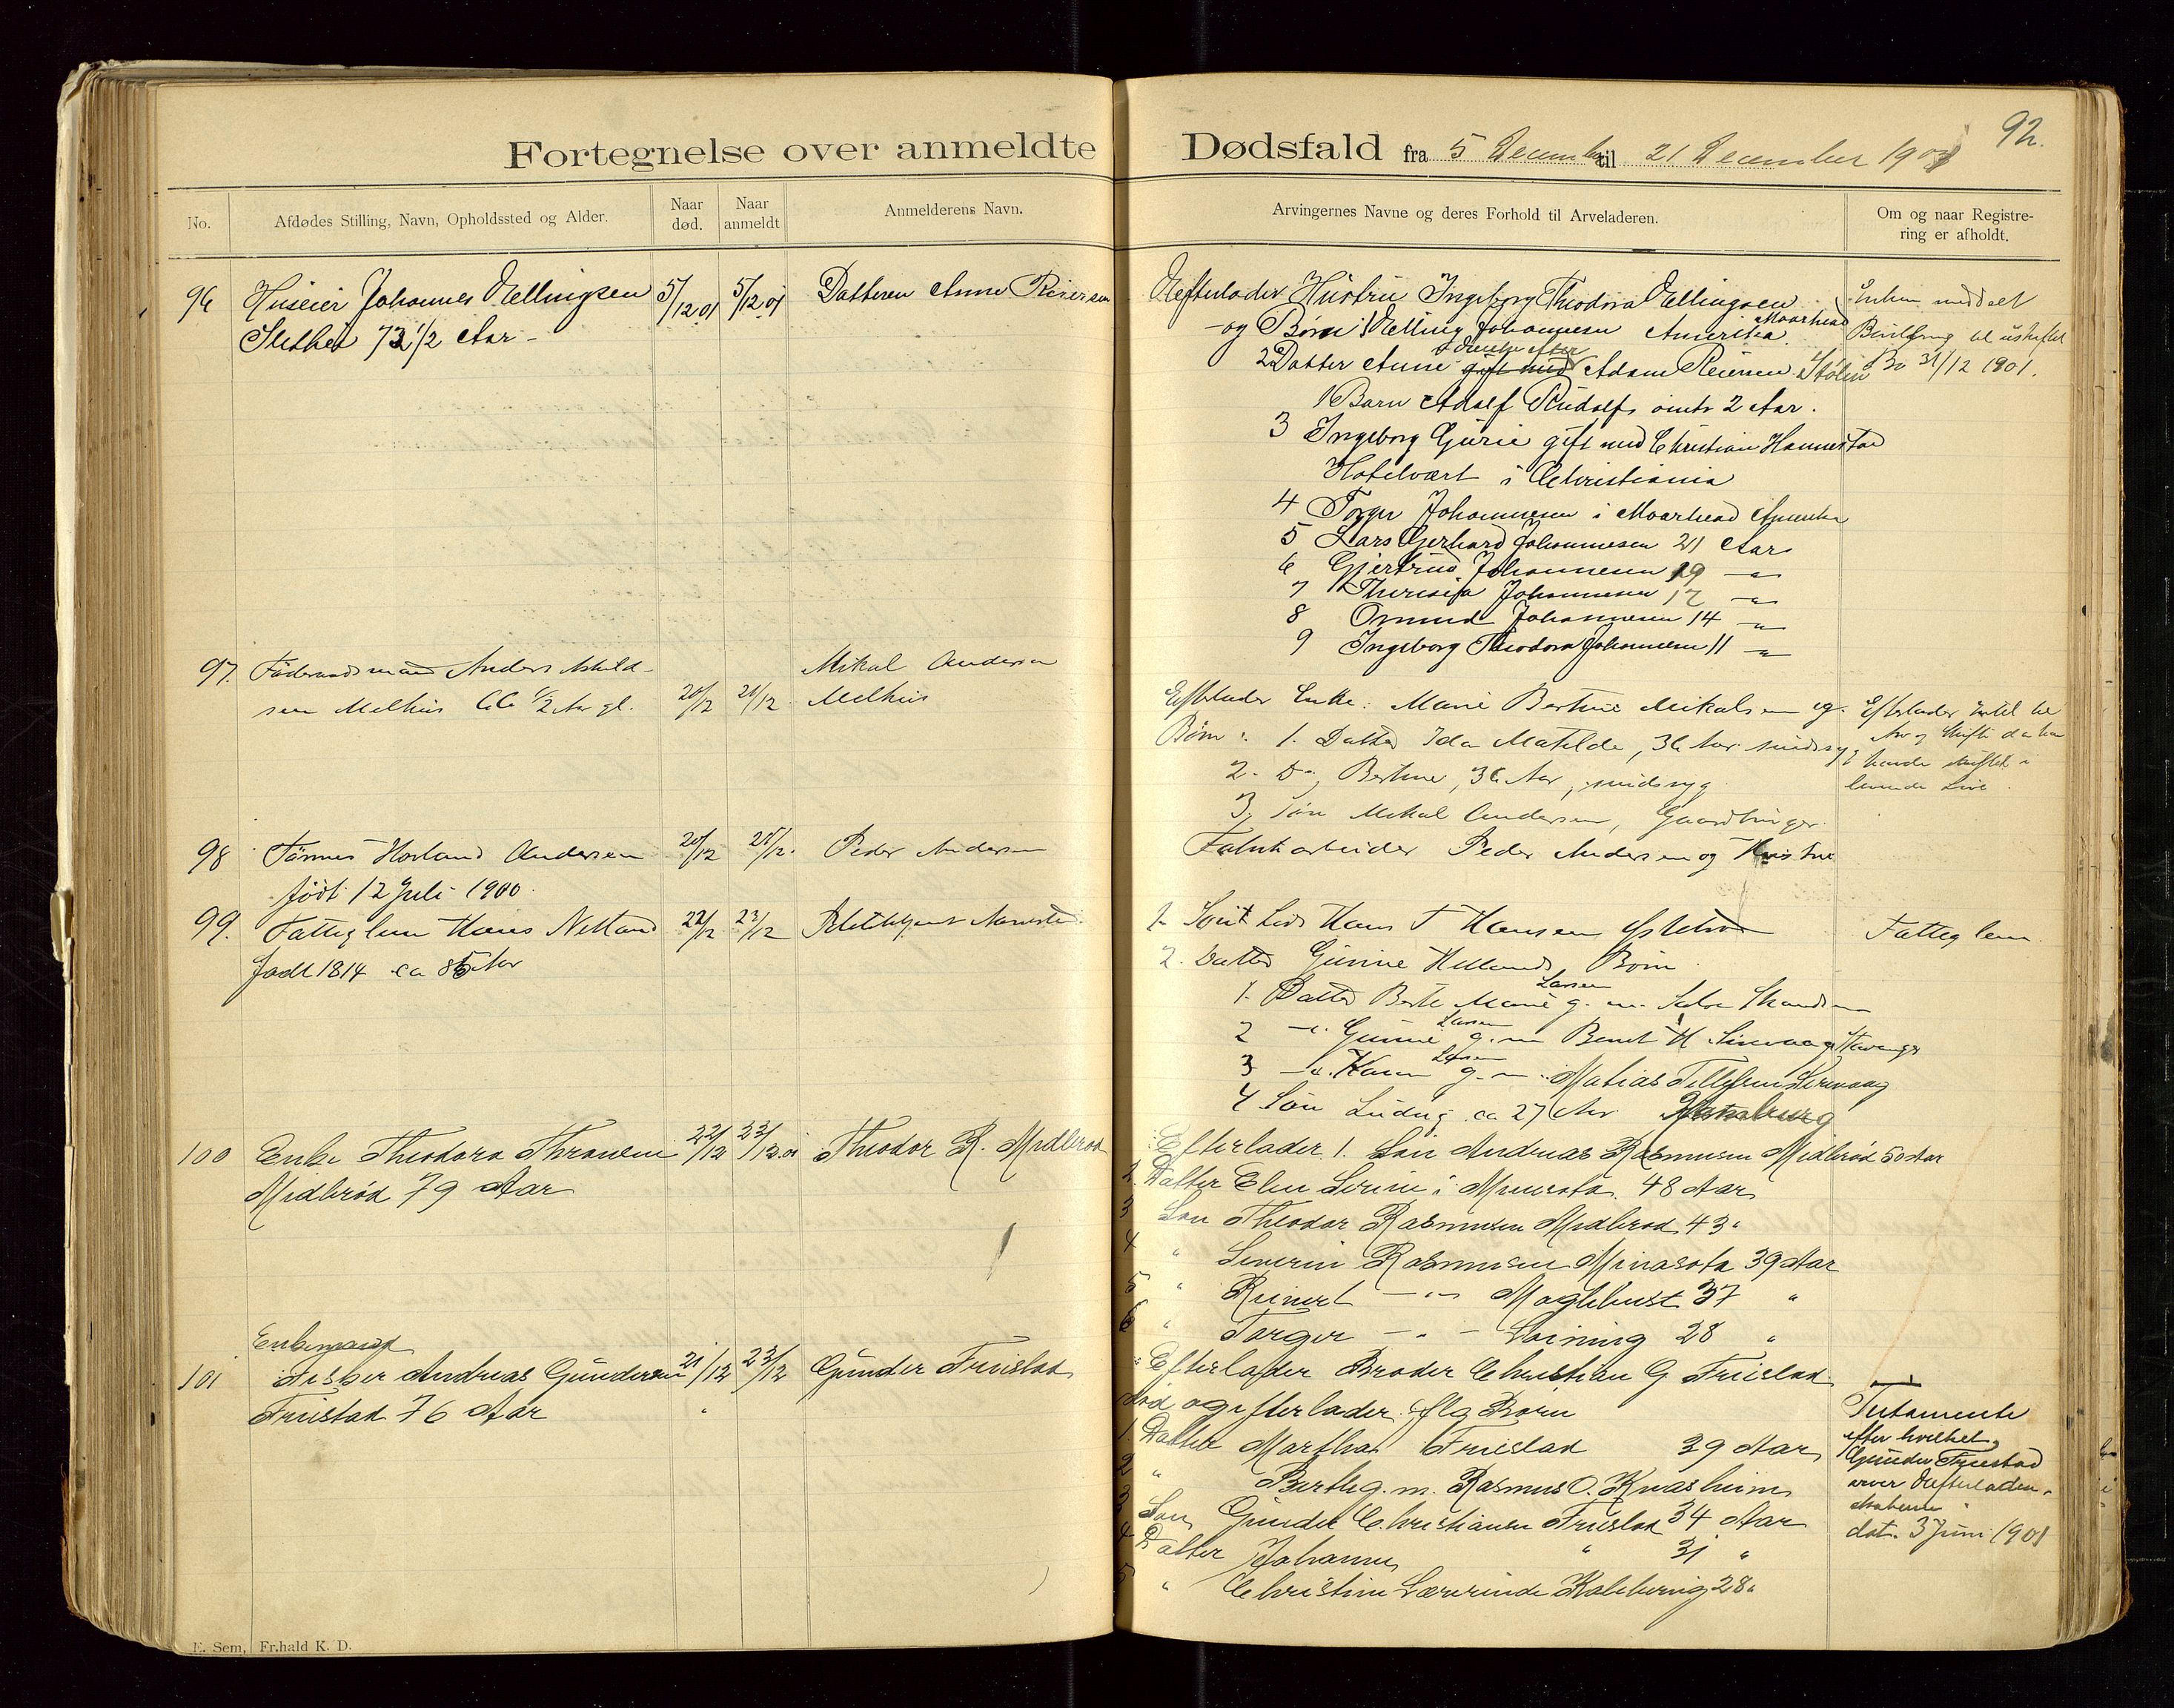 92.
Fortegnelse over anmeldte Dødsfald fra 5 December til 21 December 1901
No.
Afdødes Stilling, Navn, Opholdssted og Alder.
Naar død.
Naar anmeldt
Anmelderens Navn.
Arvingernes Navne og deres Forhold til Arveladeren.
Om og naar Registre-
ring er afholdt.
96 Huseier Johannes Ellingsen 5/12 01 5/12 01 Datteren Anne Reiersen
Slethei 73 1/2 Aar
Efterlader Hustru Ingeborg Theodora Ellingsen
og Børn 1 Elling Johannesen Amerika Moorhead
2 Datter Anne gift med Enke efter Adam Reiersen
1 Barn Adolf Rudolf omtr 2 Aar.
3 Ingeborg Gurie gift med Christian Hannestad
Hotelvært i Christiania
4 Torger Johannesen i Moorhead Amerika
5 Lars Gerhard Johannesen 21 Aar
6 Gjertrud Johannesen 19 — " —
7 Theresia Johannesen 17 — " —
8 Omund Johannesen 14 — " —
9 Ingeborg Theodora Johannesen 11 — " —
Enken meddelt
Bevilling til uskiftet
Bo 31/12 1901.
97. Föderaadsmand Anders Askild-
sen Melhus 66 1/2 Aar gl. 20/12 21/12
Mikal Andersen
Melhus
Efterlader Enke: Marie Bertine Mikalsen og
Børn: 1. Datter Ida Matilde, 36 Aar sindssyg
2. Do, Bertine, 36 Aar, sindsyg
3. Søn Mikal Andersen, Gaardbruger
Efterlader Intet til
Arv og Skifte da han
havde skiftet i
levende Live.
98 Tönnes Hovland Andersen 20/12 21/12. Peder Andersen
født 12 Juli 1900.
Fabrikarbeider Peder Andersen og Hustru
99. Fatteglem Hans Netland 22/12 23/12
født 1814 ca 85 Aar
1. Hans T Hansen
2. Datter Gurine Hellands Børn
1. Datter Berte Marie Larsen g. m.
2 — " — Gurine Larsen g. m Bernt H. Sirevaag Stavanger
3 — " — Karen Larsen g. m. Matias Tollefsen Sirevaag
4 Søn Ludvig ca 27 Aar
Fatteglem.
100 Enke Theodora Thronsen 22/12 23/12 01 Theodor R. Midbrød
Midbrød 79 Aar
Efterlader 1. Søn Andreas Rasmusen Midbrød 50 Aar
2. Datter Elen Serine i Minesota 48 Aar
3 Søn Theodor Rasmusen Midbrød 43 "
4 " Severin Rasmusen Minasota 39 Aar
5 " Reinert — " — Moglebust 37 "
6 " Torger — " — 28 "
Enkemand
101 Fisker Andreas Gundersen 21/12 23/12 Gunder Fruistad
Fruistad 76 Aar
Efterlader Broder Christian G Fruistad
død og efterlader flg Børn
1. Datter Martha Fruistad 39 Aar
2 " Berthe g. m. Rasmus O. Kvasheim
3 Søn Gunder Christiansen Fruistad 34 Aar
4 Datter Johanne " 31 "
5 " Christine Lærerinde 28 "
Testamente
efter hvilket
Gunder Fruistad
arver Efterladen-
skaberne
dat. 3 Juni 1901
E. Sem, Fr.hald K. D.